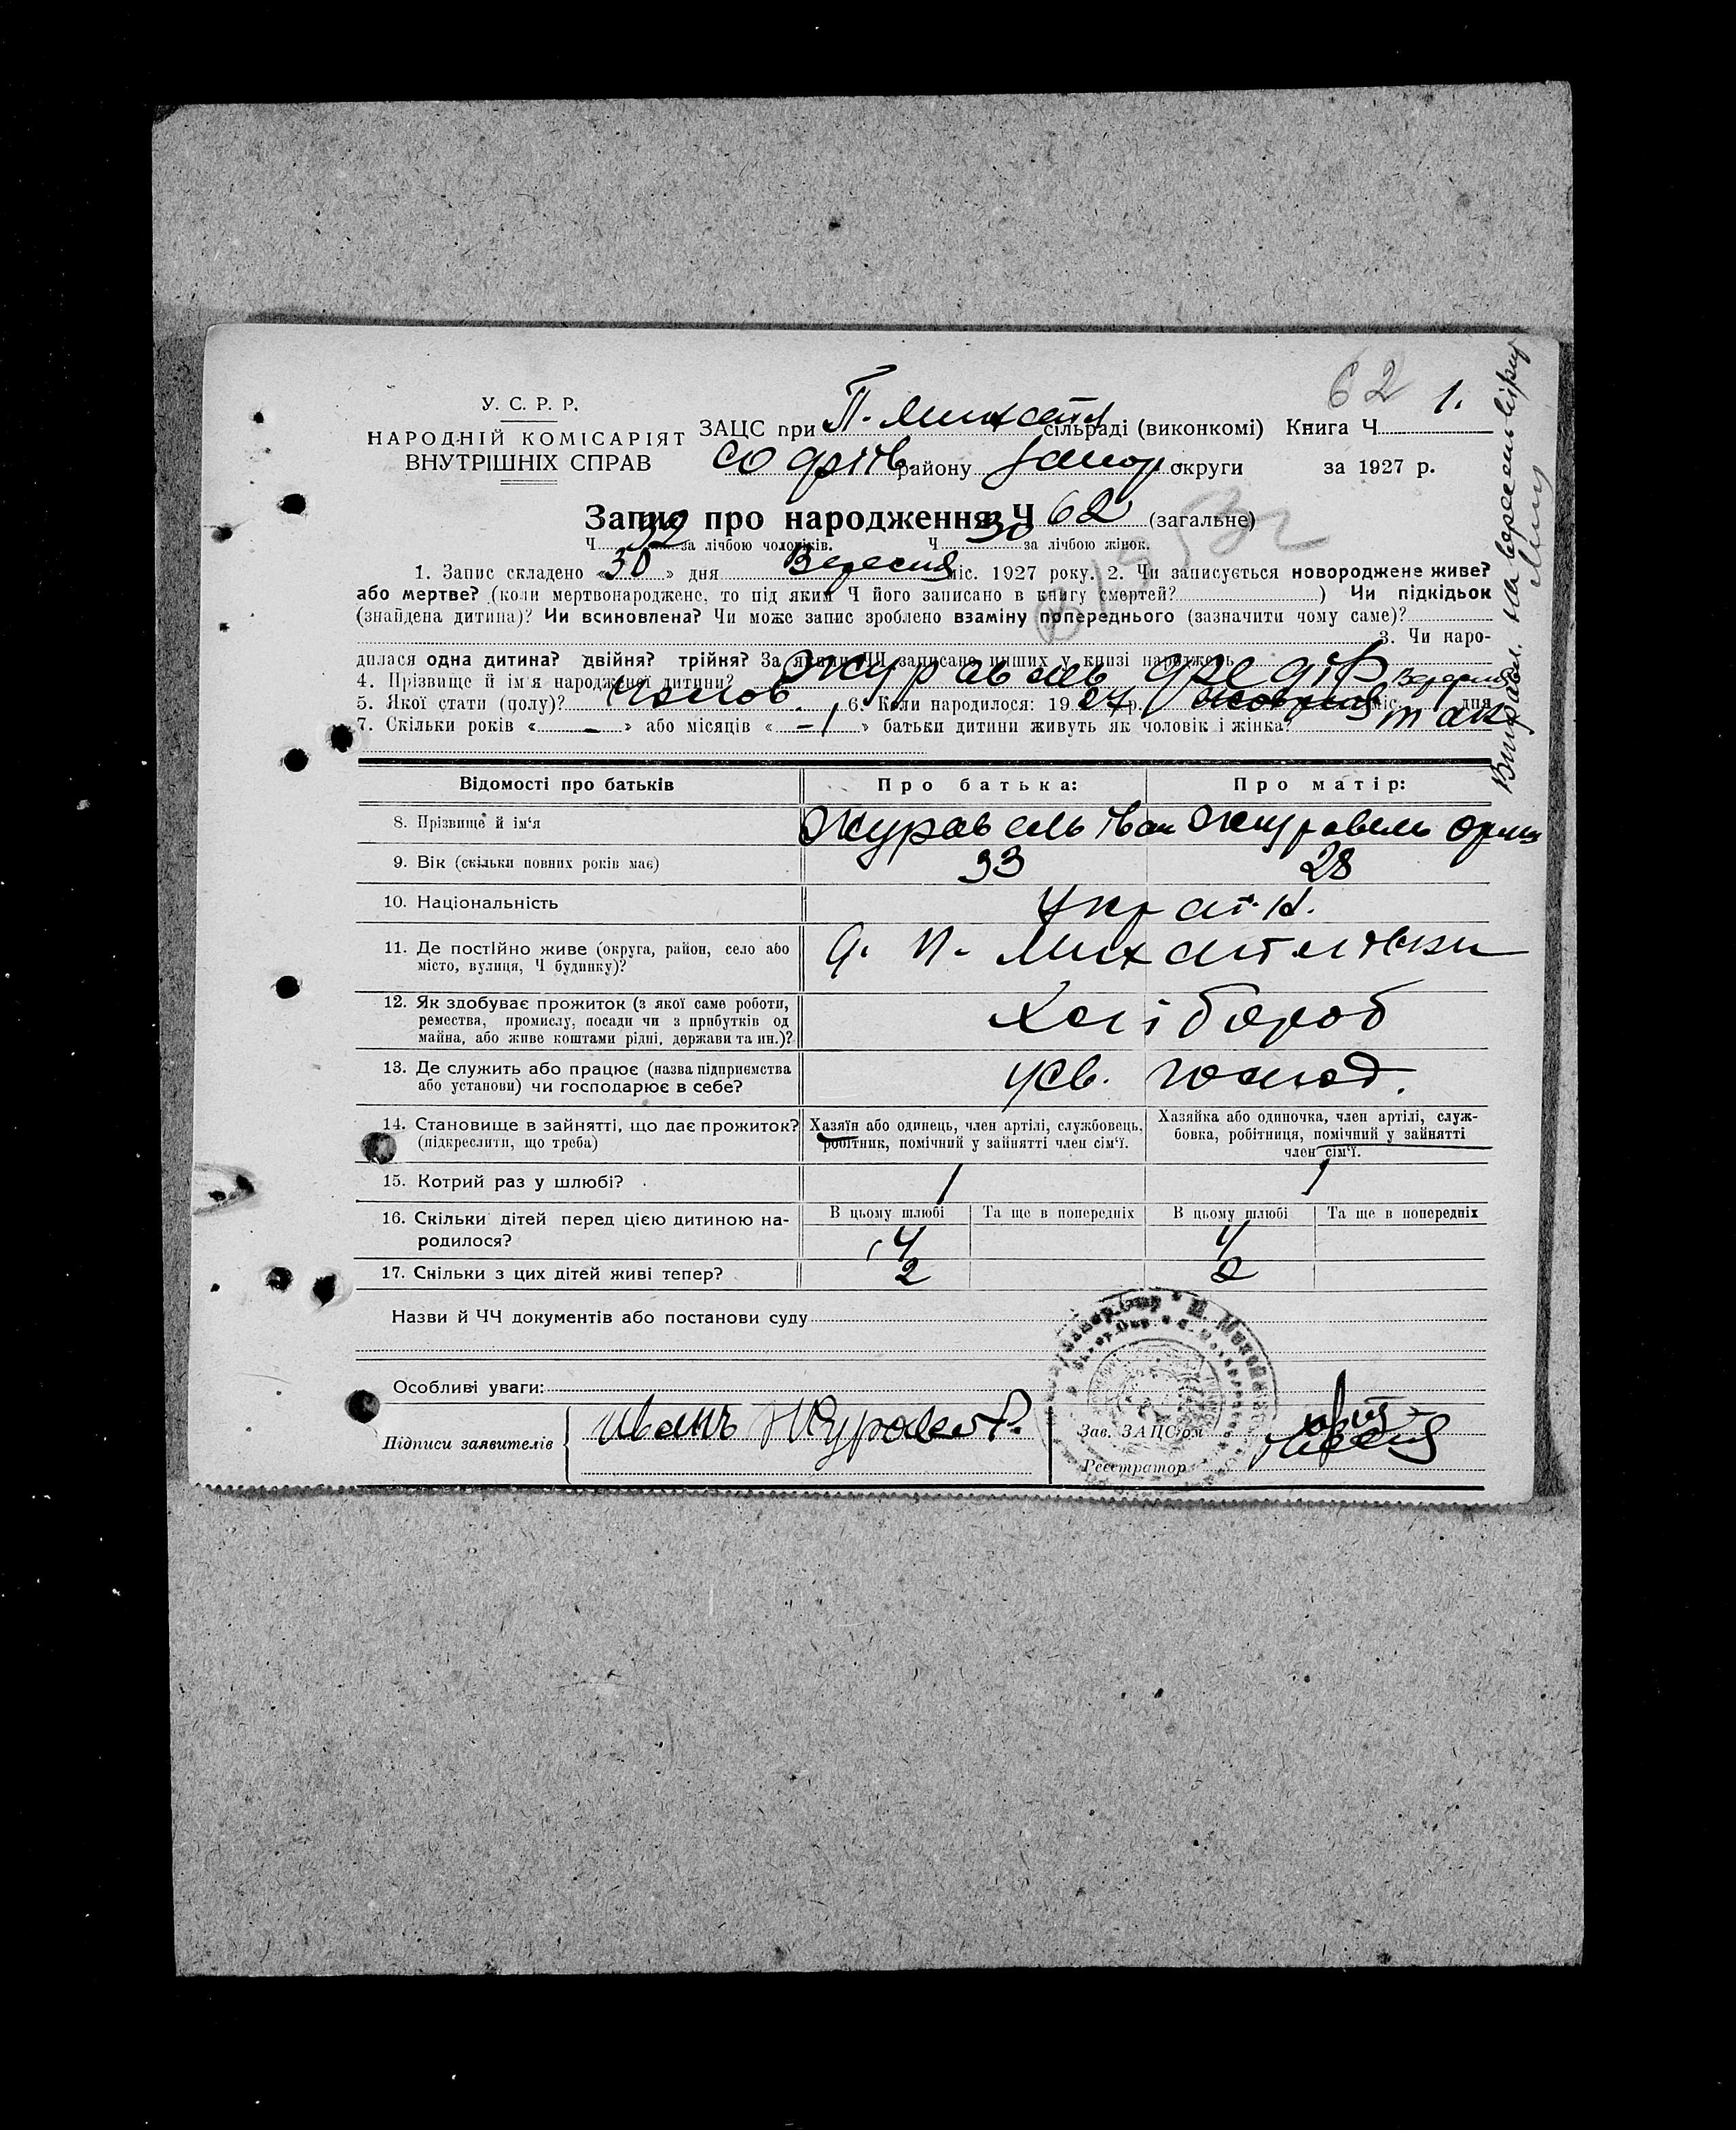 62 1.
У. С. Р. Р.
НАРОДНІЙ КОМІСАРІЯТ
ВНУТРІШНІХ СПРАВ
ЗАЦС при П. Михайл сільраді (виконкомі) Книга Ч
Софіїв району Запор округи за 1927 р.
Запис про народження Ч 62 (загальне)
Ч 32 за лічбою чоловіків. Ч 30 за лічбою жінок.
1. Запис складено «30» дня Вересня міс. 1927 року. 2. Чи записується новороджене живе?
або мертве? (коли мертвонароджене, то під яким Ч його записано в книгу смертей? ) Чи підкідьок
(знайдена дитина)? Чи всиновлена? Чи може запис зроблено взаміну попереднього (зазначити чому саме)?
3. Чи наро-
дилася одна дитина? двійня? трійня? За якими ЧЧ записано инших у книзі народжень
4. Прізвище й ім'я народженої дитини? Журавель Федір Вересня
5. Якої стати (полу)? Чолов. 6. Коли народилося: 1927 р. жовтня міс. 1 дня
7. Скільки років « - » або місяців « - » батьки дитини живуть як чоловік і жінка? так
Виправл. на вересень вірно
Відомості про батьків Про батька: Про матір:
8. Прізвище й ім'я Журавель Іван Журавель Орина
9. Вік (скільки повних років має) 33 28
10. Національність Україн.
11. Де постійно живе (округа, район, село або
місто, вулиця, Ч будинку)? с. П. Михайлівки
12. Як здобуває прожиток (з якої саме роботи,
ремества, промислу, посади чи з прибутків од
майна, або живе коштами рідні, держави та ин.)? Хлібороб
13. Де служить або працює (назва підприємства
або установи) чи господарює в себе? у св. господ.
14. Становище в зайнятті, що дає прожиток?
(підкреслити, що треба)
Хазяїн або одинець, член артілі, службовець,
робітник, помічний у зайнятті член сім'ї.
Хазяйка або одиночка, член артілі, служ-
бовка, робітниця, помічний у зайнятті
член сім'ї.
15. Котрий раз у шлюбі? 1 1
16. Скільки дітей перед цією дитиною на-
родилося?
В цьому шлюбі Та ще в попередніх В цьому шлюбі Та ще в попередніх
4 4
17. Скільки з цих дітей живі тепер? 2 2
Назви й ЧЧ документів або постанови суду
Особливі уваги:
Підписи заявителів Иванъ Журавел
Зав. ЗАЦС'ом
Реєстратор